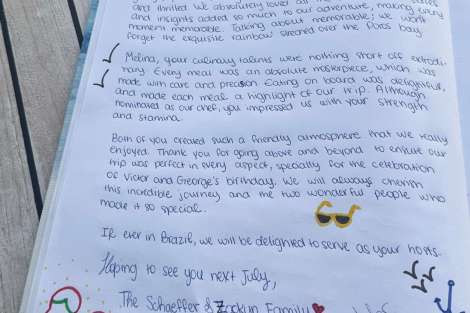 and thrilled. We absolutely loved all
and insights added so much to our adventure, making every
moment memorable. Talking about memorable; we won't
forget the exquisite rainbow streched over the Poros bay.
Melina, your culinary talents were nothing short off extrodi-
nary. Every meal was an absolute masterpiece, which was
made with care and precision. Eating on board was delightful,
and made each meal a highlight of our trip. Although
nominated as our chef, you impressed us with your strength
and stamina.
Both of you created such a friendly atmosphere that we really
enjoyed. Thank you for going above and beyond to ensure our
trip was perfect in every aspect, specially for the celebration
of Victor and George's birthday. We will always cherish
this incredible journey and the two wonderful people who
made it so special.
If ever in Brazil, we will be delighted to serve as your hosts.
Hoping to see you next July,
The Schaeffer & Family